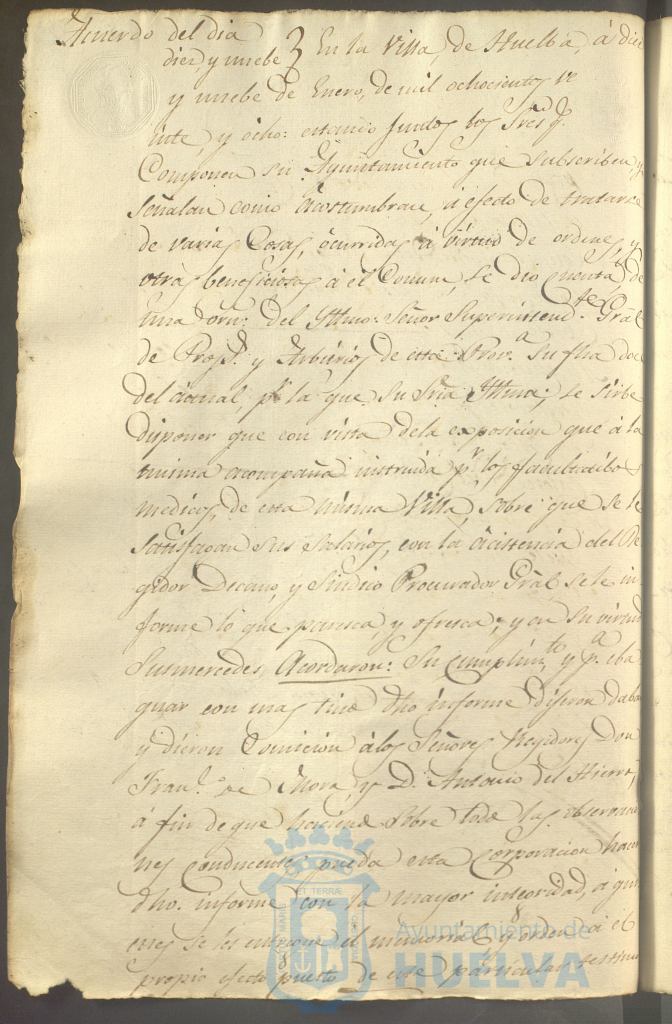 Acuerdo del dia
diez y nuebe } En la Villa, de Huelba, á diez
y nuebe de Enero, de mil ochocientos ve
inte, y ócho: estando Juntos los Sres q.e
Componen su Ayuntamiento que subscriben, y
señalan como ácostumbran, á efecto de tratarse
de varias Cosas, ócurridas á virtud de ordenes, y
otras beneficiosas á él Comun, se dio cuenta de
una orn: del Yltmo: Señor Superintend.te Gral
de Prop.s y Arbitrios de esta Prov.a su fha doce
del actual, p.r la que Su Sria Yltma; se sirbe
disponer que con vista dela exposicion que á la
misma acompaña instruida p.r los facultatibos
medicos, de esta misma Villa, sobre que se le
satisfagan sus salarios, con la ácistencia del Re
gidor Decano, y Sindico Procurador Gral se le in
forme lo que paresca, y ofresca; y en su virtud
Susmercedes, Acordaron: Su cumplim.to y p.a eba
quar con mas tino dho informe dijeron daban
y dieron Comicion álos Señores Regidores Don
Fran.co de Mora, y D.n Antonio del Hierro,
á fin de que haciendo sobre todo las observacio
nes conducentes pueda esta Corporacion hacer
dho. informe con la mayor integridad, á qui
enes se les entregue el memorial y orden á el
propio efecto puesto de este particular testimo
PORTUS MARIS ET TERRÆ CUSTODIA
Ayuntamiento de
HUELVA